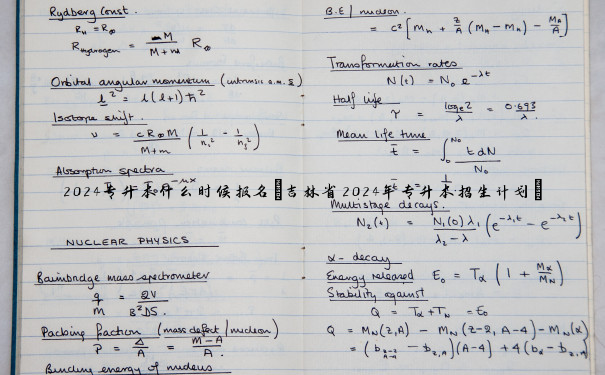 Rydberg Const.
R_H = R_∞
R_Hydrogen = M / (M + m) R_∞
Orbital angular momentum (intrinsic a.m. s)
l² = l(l+1) ħ²
Isotope shift.
ν = cR_∞M / (M+m) (1/n₁² - 1/n₂²)
Absorption spectra
NUCLEAR PHYSICS
Bainbridge mass spectrometer
q/m = 2V / B²DS.
Packing fraction (mass defect/nucleon)
P = Δ/A = (M-A)/A.
Binding energy of nucleus
2024专升本什么时候报名 吉林省2024年专升本招生计划
B.E/nucleon.
= c² [M_n + Z/A (M_H - M_n) - M_A/A]
Transformation rates
N(t) = N₀ e^-λt
Half life
γ = log_e 2 / λ = 0.693 / λ.
Mean life time
t̄ = ∫₀^N₀ t dN / N₀
Multistage decays.
N₂(t) = N₁(0) λ₁ / (λ₂ - λ) (e^-λ₁t - e^-λ₂t)
α - decay
Energy released E₀ = T_α (1 + M_α/M_N)
Stability against
Q = T_α + T_N = E₀
Q = M_N(Z,A) - M_N(Z-2, A-4) - M_N(α)